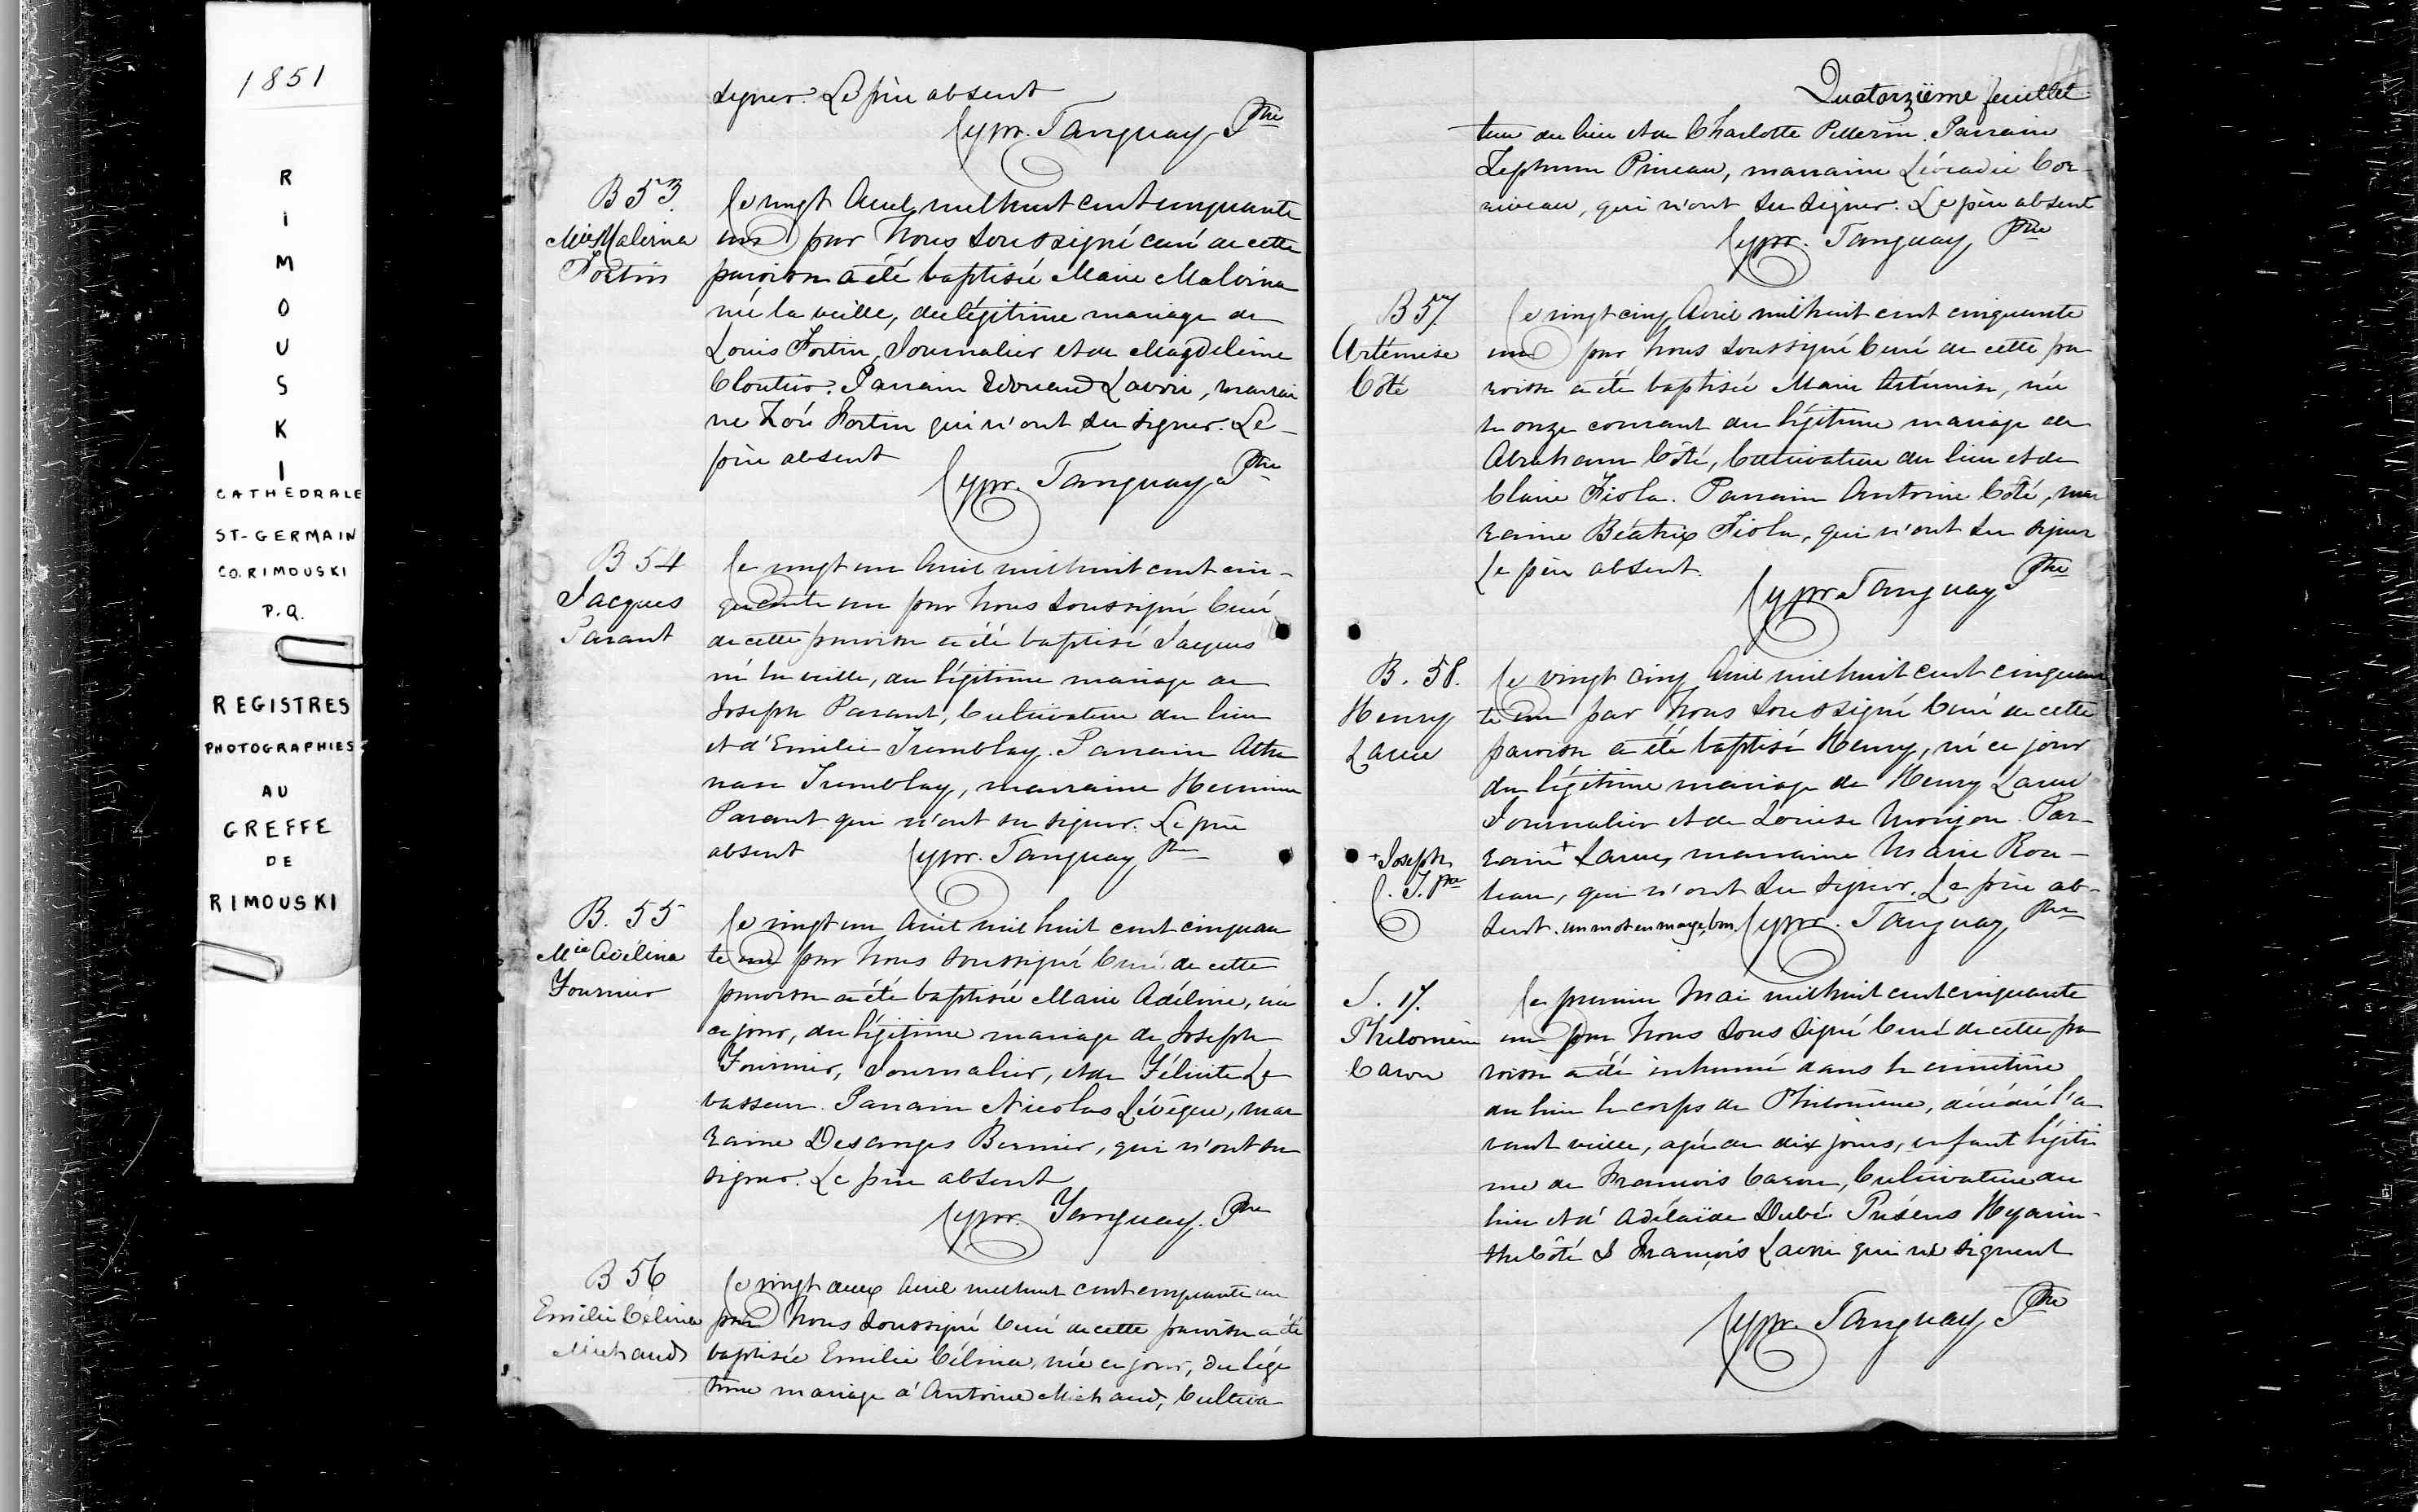 1851
RIMOUSKI
CATHEDRALE
ST-GERMAIN
CO. RIMOUSKI
P.Q.
REGISTRES
PHOTOGRAPHIES
AU
GREFFE
DE
RIMOUSKI
signer. Le père absent
Cypr. Tanguay Ptre
B 53.
Mie Malvina
Fortin
Le vingt Avril mil huit cent cinquante
un par Nous soussigné curé de cette
paroisse a été baptisée Marie Malvina
née la veille, du légitime mariage de
Louis Fortin, Journalier et de Magdeleine
Cloutier. Parrain Edouard Lavoie, marrai
ne Zoé Fortin qui n'ont su signer. Le
père absent
Cypr. Tanguay Ptre
B 54
Jacques
Parant
Le vingt un Avril mil huit cent cin-
quante un par Nous soussigné Curé
de cette paroisse a été baptisé Jacques
né la veille, du légitime mariage de
Joseph Parant, Cultivateur du lieu
et d'Emilie Tremblay. Parrain Atha
nase Tremblay, marraine Hermine
Parant qui n'ont su signer. Le père
absent
Cypr. Tanguay Ptre
B. 55
Mie Adélina
Fournier
Le vingt un Avril mil huit cent cinquan
te un par Nous soussigné Curé de cette
paroisse a été baptisée Marie Adéline, née
ce jour, du légitime mariage de Joseph
Fournier, Journalier, et de Félicité Le
vasseur. Parrain Nicolas Lévêque, mar
raine Desanges Bernier, qui n'ont su
signer. Le père absent
Cypr. Tanguay. Ptre
B 56
Emilie Célina
Michaud
Le vingt deux Avril mil huit cent cinquante un
par Nous soussigné Curé de cette paroisse a été
baptisée Emilie Célina, née ce jour, du légi
time mariage d'Antoine Michaud, Cultiva
Quatorzième feuillet
teur du lieu et de Charlotte Pellerin. Parrain
Zephirin Pineau, marraine Léocadie Cor-
riveau, qui n'ont su signer. Le père absent
Cypr. Tanguay Ptre
B 57.
Artémise
Côté
Le vingt cinq Avril mil huit cent cinquante
un par Nous soussigné Curé de cette pa
roisse a été baptisée Marie Artémise, née
le onze courant du légitime mariage de
Abraham Côté, Cultivateur du lieu et de
Claire Fiola. Parrain Antoine Côté, mar
raine Béatrix Fiola, qui n'ont su signer
Le père absent.
Cypr. Tanguay Ptre
B. 58.
Henry
Larue
Le vingt cinq Avril mil huit cent cinquan
te un par Nous soussigné Curé de cette
paroisse a été baptisé Henry, né ce jour
du légitime mariage de Henry Larue
Journalier et de Louise Morijou. Par-
rain + Larue, marraine Marie Rou-
leau, qui n'ont su signer. Le père ab-
sent. un mot en marge, bon. Cypr. Tanguay Ptre
+ Joseph
C. T. Ptre
S. 17.
Philomène
Caron
Le premier Mai mil huit cent cinquante
un par Nous soussigné Curé de cette pa
roisse a été inhumé dans le cimetière
du lieu le corps de Philomène, décédée l'a
vant veille, agée de dix jours, enfant légiti
me de François Caron, Cultivateur du
lieu et d'Adélaïde Dubé. Présens Hyacin-
the Côté & François Lavoie qui ne signent
Cypr. Tanguay Ptre